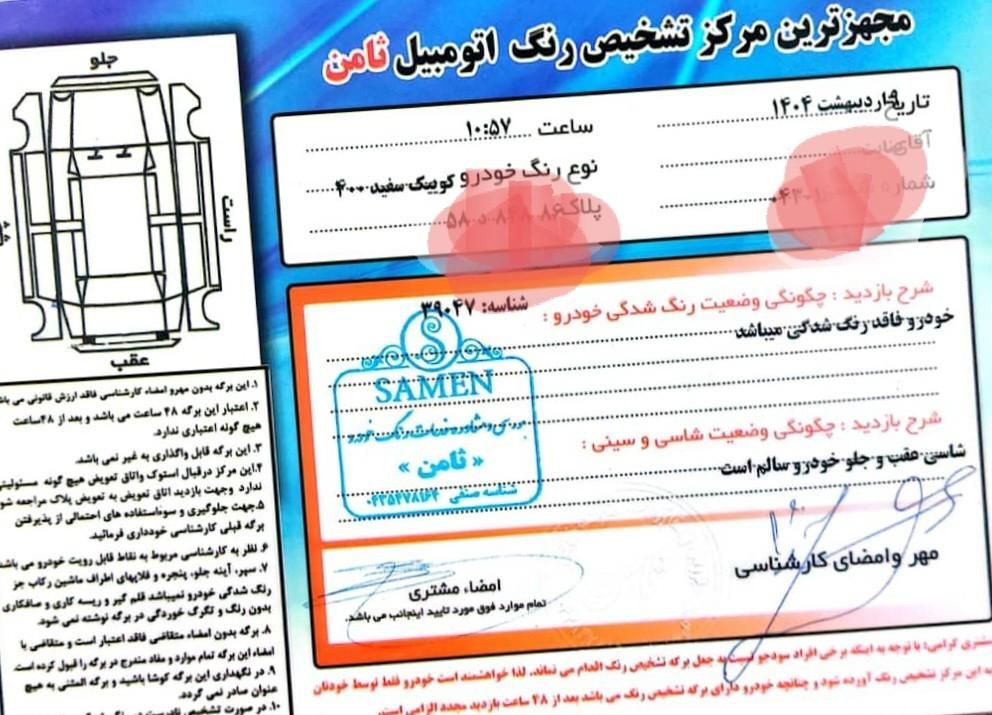 مجهزترین مرکز تشخیص رنگ اتومبیل ثامن
تاریخ ۹اردیبهشت ۱۴۰۴
ساعت ۱۰:۵۷
آقای
نوع رنگ خودرو کوییک سفید ۴۰۰
شماره
پلاک
جلو
راست
عقب
شرح بازدید : چگونگی وضعیت رنگ شدگی خودرو :
شناسه: ۳۹۰۴۷
خودرو فاقد رنگ شدگی میباشد
SAMEN
« ثامن »
شناسه صنفی ۰۴۳۵۴۷۸۱۶۴
شرح بازدید : چگونگی وضعیت شاسی و سینی :
شاسی عقب و جلو خودرو سالم است
مهر وامضای کارشناسی
امضاء مشتری
تمام موارد فوق مورد تایید اینجانب می باشد.
۱. این برگه بدون مهرو امضاء کارشناسی فاقد ارزش قانونی می
۲. اعتبار این برگه ۴۸ ساعت می باشد و بعد از ۴۸ساعت
هیچ گونه اعتباری ندارد.
۳. این برگه قابل واگذاری به غیر نمی باشد.
۴.این مرکز درقبال استوک واتاق تعویض هیچ گونه مسئولیتی
ندارد وجهت بازدید اتاق تعویض به تعویض پلاک مراجعه
۵.جهت جلوگیری و سوءاستفاده های احتمالی از پذیرفتن
برگه قبلی کارشناسی خودداری فرمائید.
۶. نظر به کارشناسی مربوط به نقاط قابل رویت خودرو می
۷. سپر، آینه جلو، پنجره و قلابهای اطراف ماشین رکاب جز
رنگ شدگی خودرو نمیباشد قلم گیر و ریسه کاری و صافکاری
بدون رنگ و تگرگ خوردگی در برگه نوشته نمی شود.
۸. برگه بدون امضاء متقاضی فاقد اعتبار است و متقاضی با
امضاء این برگه تمام موارد و مفاد مندرج در برگه را قبول کرده است.
۹. در نگهداری این برگه کوشا باشید و برگه المثنی به هیچ
عنوان صادر نمی گردد.
۱۰. در صورت تشخیص نادرست
مشتری گرامی: با توجه به اینکه برخی افراد سودجو نسبت به جعل برگه تشخیص رنگ اقدام می نمایند، لذا خواهشمند است خودرو فقط توسط خودتان
به این مرکز تشخیص رنگ آورده شود و چنانچه خودرو دارای برگه تشخیص رنگ می باشد بعد از ۴۸ ساعت بازدید مجدد الزامی است.